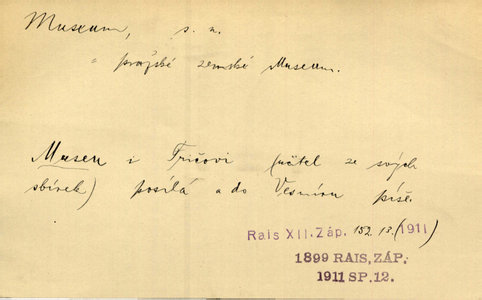 Museum, s. n.
" pražské zemské Museum.
Museu i Fričovi (učitel ze svých
sbírek) posílá a do Vesmíru píše.
Rais XII. Záp. 152.13. (1911)
1899 RAIS, ZÁP.
1911 SP. 12.